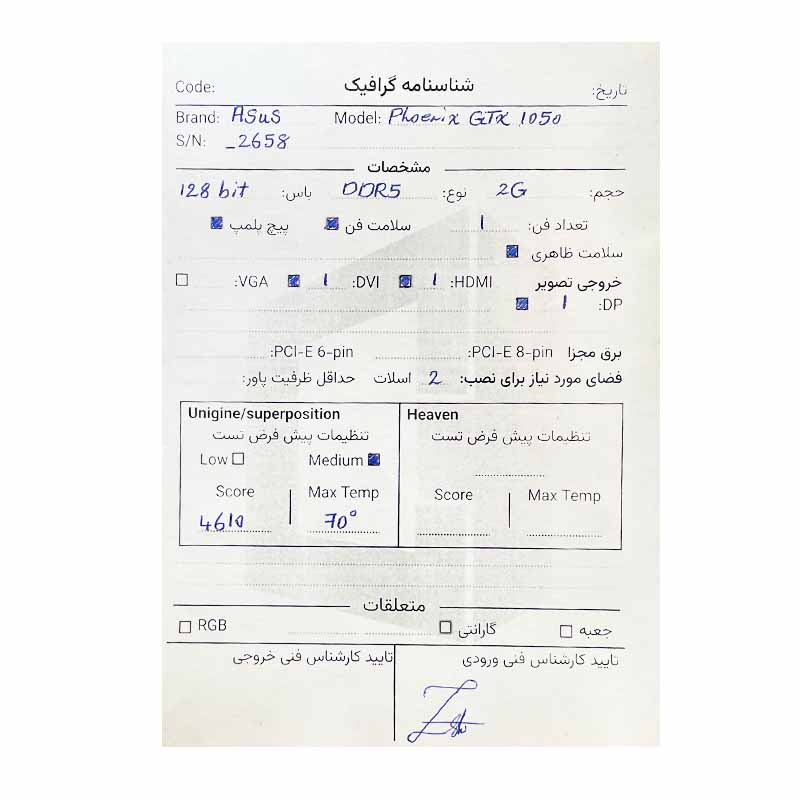 Code: شناسنامه گرافیک تاریخ:
Brand: ASUS Model: Phoenix GTX 1050
S/N: _2658
مشخصات
حجم: 2G نوع: DDR5 باس: 128 bit
تعداد فن: 1 سلامت فن پیچ پلمپ
سلامت ظاهری
خروجی تصویر HDMI: 1 DVI: 1 VGA:
DP: 1
برق مجزا PCI-E 8-pin: PCI-E 6-pin:
فضای مورد نیاز برای نصب: 2 اسلات حداقل ظرفیت پاور:
Unigine/superposition Heaven
تنظیمات پیش فرض تست تنظیمات پیش فرض تست
Low Medium
Score Max Temp Score Max Temp
4610 70°
متعلقات
جعبه گارانتی RGB
تایید کارشناس فنی ورودی تایید کارشناس فنی خروجی